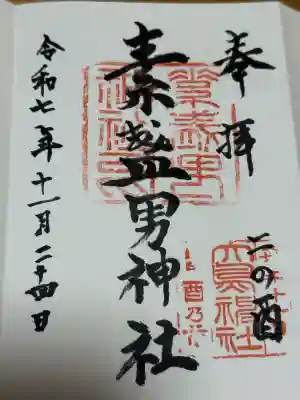 奉拝
二の酉
素盞男神社
令和七年十一月二十四日